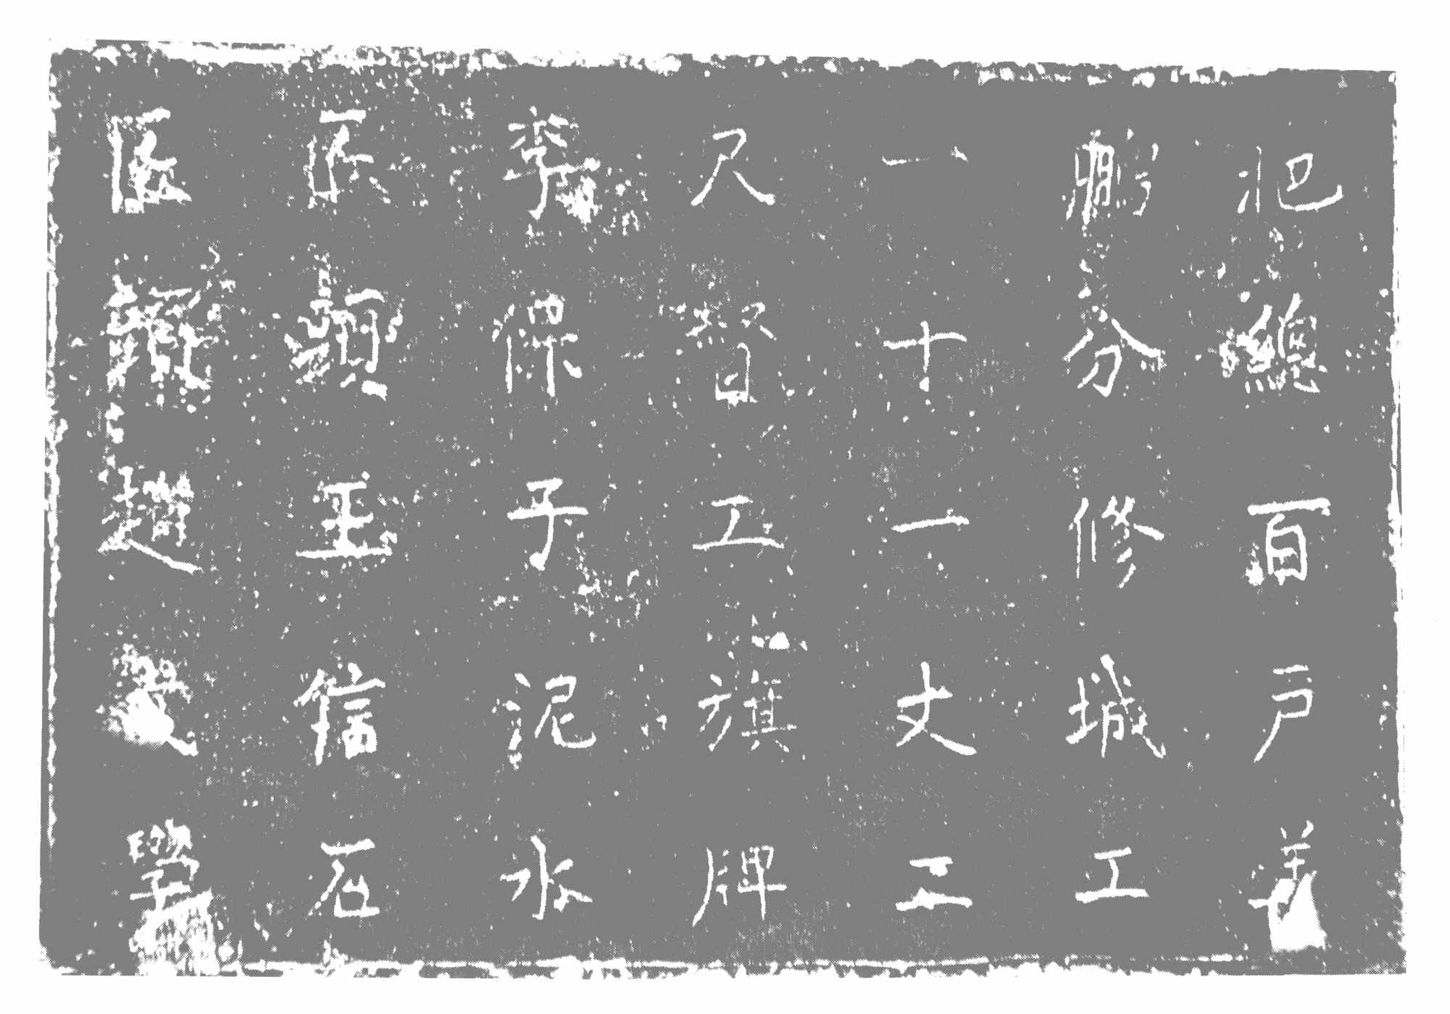 把總百戶姜
鵬分修城工
一十一丈二
尺督工旗牌
李保子泥水
匠頭王信石
匠頭趙文學